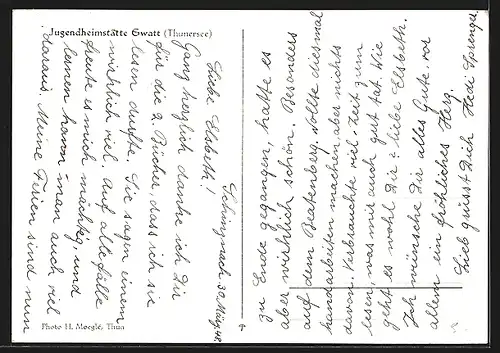 Jugendheimstätte Gwatt (Thunersee)
Schinznach 30. März 48.
Liebe Elsbeth!
Ganz herzlich danke ich Dir
für die 2 Bücher, dass ich sie
lesen durfte. Sie sagen einem
wirklich viel. Auf alle Fälle
freute es mich mächtig, und
lernen kann man auch viel
daraus. Meine Ferien sind nun
zu Ende gegangen, hatte es
aber wirklich schön. Besonders
auf dem Beatenberg. Wollte diesmal
handarbeiten machen aber nichts
davon. Verbrauchte viel Zeit zum
lesen, was mir auch gut tat. Wie
geht es wohl Dir? liebe Elsbeth.
Ich wünsche Dir alles Gute, vor
allem ein fröhliches Herz.
Lieb grüsst Dich Hedi Sprenger.
Photo H. Moeglé, Thun